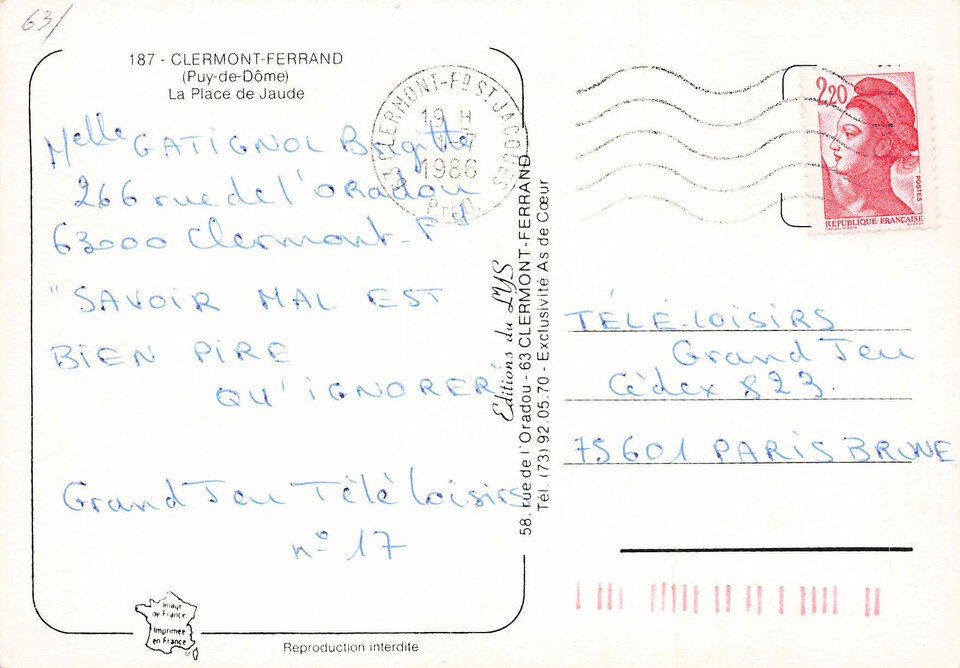 63/
187 - CLERMONT-FERRAND
(Puy-de-Dôme)
La Place de Jaude
Melle GATIGNOL Brigitte
266 rue de l'ORadou
63000 Clermont-Fd
"SAVOIR MAL EST
BIEN PIRE
QU'IGNORER"
Grand Jeu Télé Loisirs
n° 17
63 CLERMONT-FD ST JACQUES
19 H
1986
P. DE D.
Editions du LYS
58, rue de l'Oradou - 63 CLERMONT-FERRAND
Tél. (73) 92.05.70 - Exclusivité As de Cœur
2,20
POSTES
REPUBLIQUE FRANÇAISE
TÉLÉ-LOISIRS
Grand Jeu
Cédex 823.
75601 PARIS BRUNE
Image
de France
Imprimée
en France
Reproduction interdite